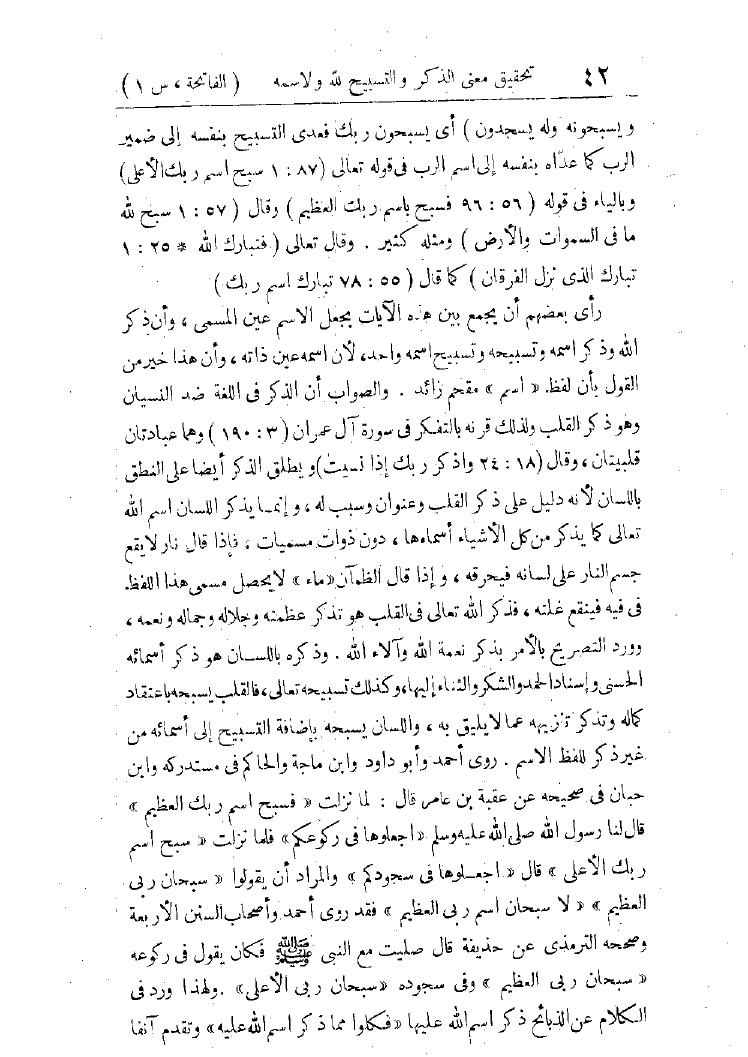 ٤٢ تحقيق معنى الذكر والتسبيح لله ولاسمه ( الفاتحة ، س ١ )
ويسبحونه وله يسجدون ) أى يسبحون ربك فعدى التسبيح بنفسه إلى ضمير
الرب كما عدّاه بنفسه إلى اسم الرب فى قوله تعالى (٨٧ : ١ سبح اسم ربك الأعلى)
وبالياء فى قوله ( ٥٦ : ٩٦ فسبح باسم ربك العظيم ) وقال ( ٥٧ : ١ سبح لله
ما فى السموات والأرض ) ومثله كثير . وقال تعالى ( فتبارك الله * ٢٥ : ١
تبارك الذى نزل الفرقان ) كما قال ( ٥٥ : ٧٨ تبارك اسم ربك )
رأى بعضهم أن يجمع بين هذه الآيات بجعل الاسم عين المسمى ، وأن ذكر
الله وذكر اسمه وتسبيحه وتسبيح اسمه واحد، لأن اسمه عين ذاته ، وأن هذا خير من
القول بأن لفظ « اسم » مقحم زائد . والصواب أن الذكر فى اللغة ضد النسيان
وهو ذكر القلب ولذلك قرنه بالتفكر فى سورة آل عمران ( ٣ : ١٩٠ ) وهما عبادتان
قلبيتان ، وقال (١٨ : ٢٤ واذكر ربك إذا نسيت) ويطلق الذكر أيضا على النطق
باللسان لأنه دليل على ذكر القلب وعنوان وسبب له ، وإنمـا يذكر اللسان اسم الله
تعالى كما يذكر من كل الأشياء أسماءها ، دون ذوات مسميات ، فإذا قال نار لا يقع
جسم النار على لسانه فيحرقه ، وإذا قال الظمآن «ماء» لا يحصل مسمى هذا اللفظ
فى فيه فينقع غلته ، فذكر الله تعالى فى القلب هو تذكر عظمته وجلاله وجماله ونعمه ،
وورد التصريح بالأمر بذكر نعمة الله وآلاء الله . وذكره باللسـان هو ذكر أسمائه
الحسنى وإسناد الحمد والشكر والثناء إليها، وكذلك تسبيحه تعالى، فالقلب يسبحه باعتقاد
كماله وتذكر تنزيهه عما لا يليق به ، واللسان يسبحه بإضافة التسبيح إلى أسمائه من
غير ذكر للفظ الاسم . روى أحمد وأبو داود وابن ماجة والحاكم فى مستدركه وابن
حبان فى صحيحه عن عقبة بن عامر قال : لما نزلت « فسبح اسم ربك العظيم »
قال لنا رسول الله صلى الله عليه وسلم «اجعلوها فى ركوعكم» فلما نزلت « سبح اسم
ربك الأعلى » قال « اجعـلوها فى سجودكم » والمراد أن يقولوا « سبحان ربى
العظيم » « لا سبحان اسم ربى العظيم » فقد روى أحمد وأصحاب السنن الأربعة
وصححه الترمذى عن حذيفة قال صليت مع النبى ﷺ فكان يقول فى ركوعه
« سبحان ربى العظيم » وفى سجوده «سبحان ربى الأعلى» . ولهذا ورد فى
الكلام عن الذبائح ذكر اسم الله عليها «فكلوا مما ذكر اسم الله عليه» وتقدم آنفا